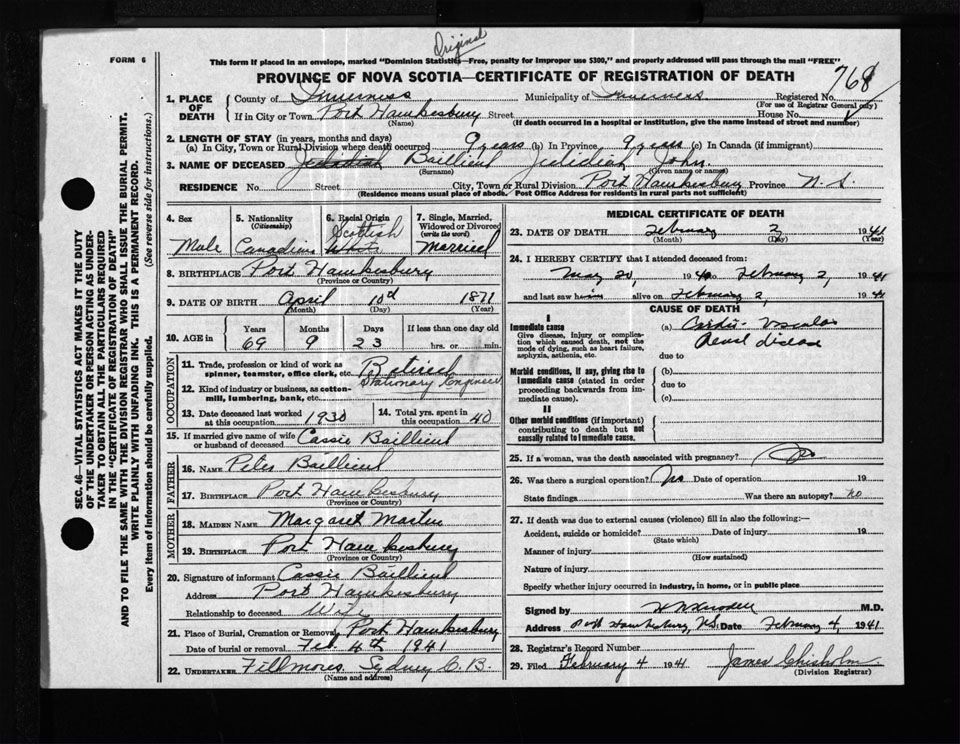 Original
FORM 6
This form if placed in an envelope, marked "Dominion Statistics—Free, penalty for improper use $300," and properly addressed will pass through the mail "FREE"
PROVINCE OF NOVA SCOTIA—CERTIFICATE OF REGISTRATION OF DEATH
768
1. PLACE OF DEATH
County of Inverness Municipality of Inverness Registered No.
(For use of Registrar General only)
If in City or Town Port Hawkesbury Street House No.
(Name) (If death occurred in a hospital or institution, give the name instead of street and number)
2. LENGTH OF STAY (in years, months and days)
(a) In City, Town or Rural Division where death occurred 9 years (b) In Province 9 years (c) In Canada (if immigrant)
3. NAME OF DECEASED Jedidiah Baillieul Jedidiah John
(Surname) (Given name or names)
RESIDENCE No. Street City, Town or Rural Division Port Hawkesbury Province N. S.
(Residence means usual place of abode. Post Office Address for residents in rural parts not sufficient)
4. Sex Male
5. Nationality (Citizenship) Canadian
6. Racial Origin Scottish White
7. Single, Married, Widowed or Divorced (write the word) Married
8. BIRTHPLACE Port Hawkesbury
(Province or Country)
9. DATE OF BIRTH April 10th 1871
(Month) (Day) (Year)
10. AGE in Years 69 Months 9 Days 23 If less than one day old hrs. or min.
OCCUPATION
11. Trade, profession or kind of work as spinner, teamster, office clerk, etc. Retired
12. Kind of industry or business, as cotton-mill, lumbering, bank, etc. Stationary Engineer
13. Date deceased last worked at this occupation 1930
14. Total yrs. spent in this occupation 40
15. If married give name of wife or husband of deceased Cassie Baillieul
FATHER
16. NAME Peter Baillieul
17. BIRTHPLACE Port Hawkesbury
(Province or Country)
MOTHER
18. MAIDEN NAME Margaret Martin
19. BIRTHPLACE Port Hawkesbury
(Province or Country)
20. Signature of informant Cassie Baillieul
Address Port Hawkesbury
Relationship to deceased Wife
21. Place of Burial, Cremation or Removal Port Hawkesbury
Date of burial or removal Feb. 4th 1941
22. UNDERTAKER Fillmores. Sydney C. B.
(Name and address)
MEDICAL CERTIFICATE OF DEATH
23. DATE OF DEATH February 2 1941
(Month) (Day) (Year)
24. I HEREBY CERTIFY that I attended deceased from:
May 20, 1940 to February 2, 1941
and last saw h alive on February 2, 1941
CAUSE OF DEATH
I
Immediate cause
Give disease, injury or complication which caused death, not the mode of dying, such as heart failure, asphyxia, asthenia, etc.
(a) Cardio-Vascular
Renal disease
due to
Morbid conditions, if any, giving rise to immediate cause (stated in order proceeding backwards from immediate cause).
(b)
due to
(c)
II
Other morbid conditions (if important) contributing to death but not causally related to immediate cause.
25. If a woman, was the death associated with pregnancy?
26. Was there a surgical operation? No Date of operation 19
State findings Was there an autopsy? No
27. If death was due to external causes (violence) fill in also the following:—
Accident, suicide or homicide? Date of injury 19
(State which)
Manner of injury
(How sustained)
Nature of injury
Specify whether injury occurred in industry, in home, or in public place
Signed by M.D.
Address Port Hawkesbury, N.S. Date February 4, 1941
28. Registrar's Record Number
29. Filed February 4 1941 James Chisholm
(Division Registrar)
SEC. 46—VITAL STATISTICS ACT MAKES IT THE DUTY
OF THE UNDERTAKER OR PERSON ACTING AS UNDER-
TAKER TO OBTAIN ALL THE PARTICULARS REQUIRED
IN THE "CERTIFICATE OF REGISTRATION OF DEATH"
AND TO FILE THE SAME WITH THE DIVISION REGISTRAR WHO SHALL ISSUE THE BURIAL PERMIT.
WRITE PLAINLY WITH UNFADING INK. THIS IS A PERMANENT RECORD.
Every item of information should be carefully supplied. (See reverse side for instructions.)